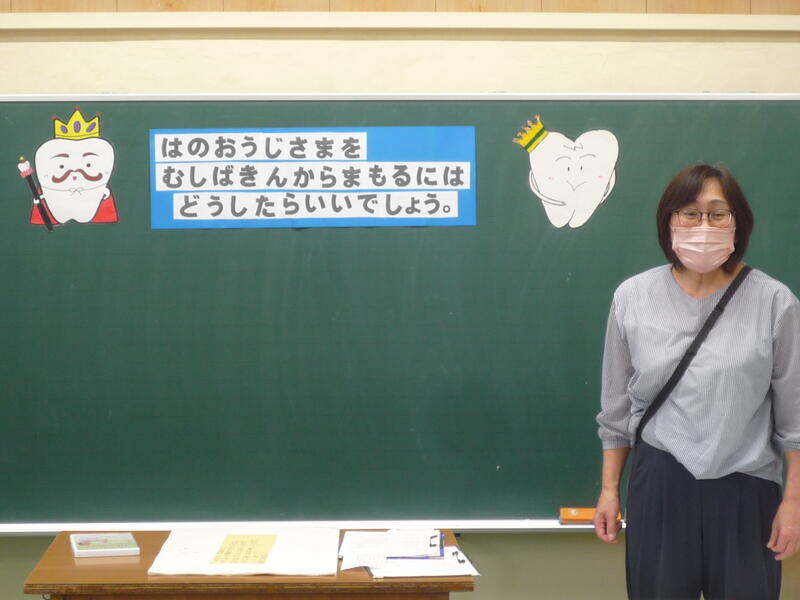 はのおうじさまを
むしばきんからまもるには
どうしたらいいでしょう。